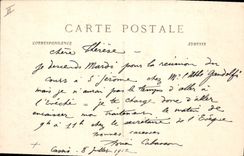 CARTE POSTALE
CORRESPONDANCE ADRESSE
Chère Thérèse —
Je descends Mardi pour la réunion du
Cours à St Jérôme, chez Mr l'Abbé Gandolfi
mais je n'aurai pas le temps d'aller à
l'Évêché — je te charge donc d'aller
encaisser mon traitement le matin de
9h à 11h chez le secrétaire de l'Évêque
bonnes caresses
Cassis - 8 Juillet 1912